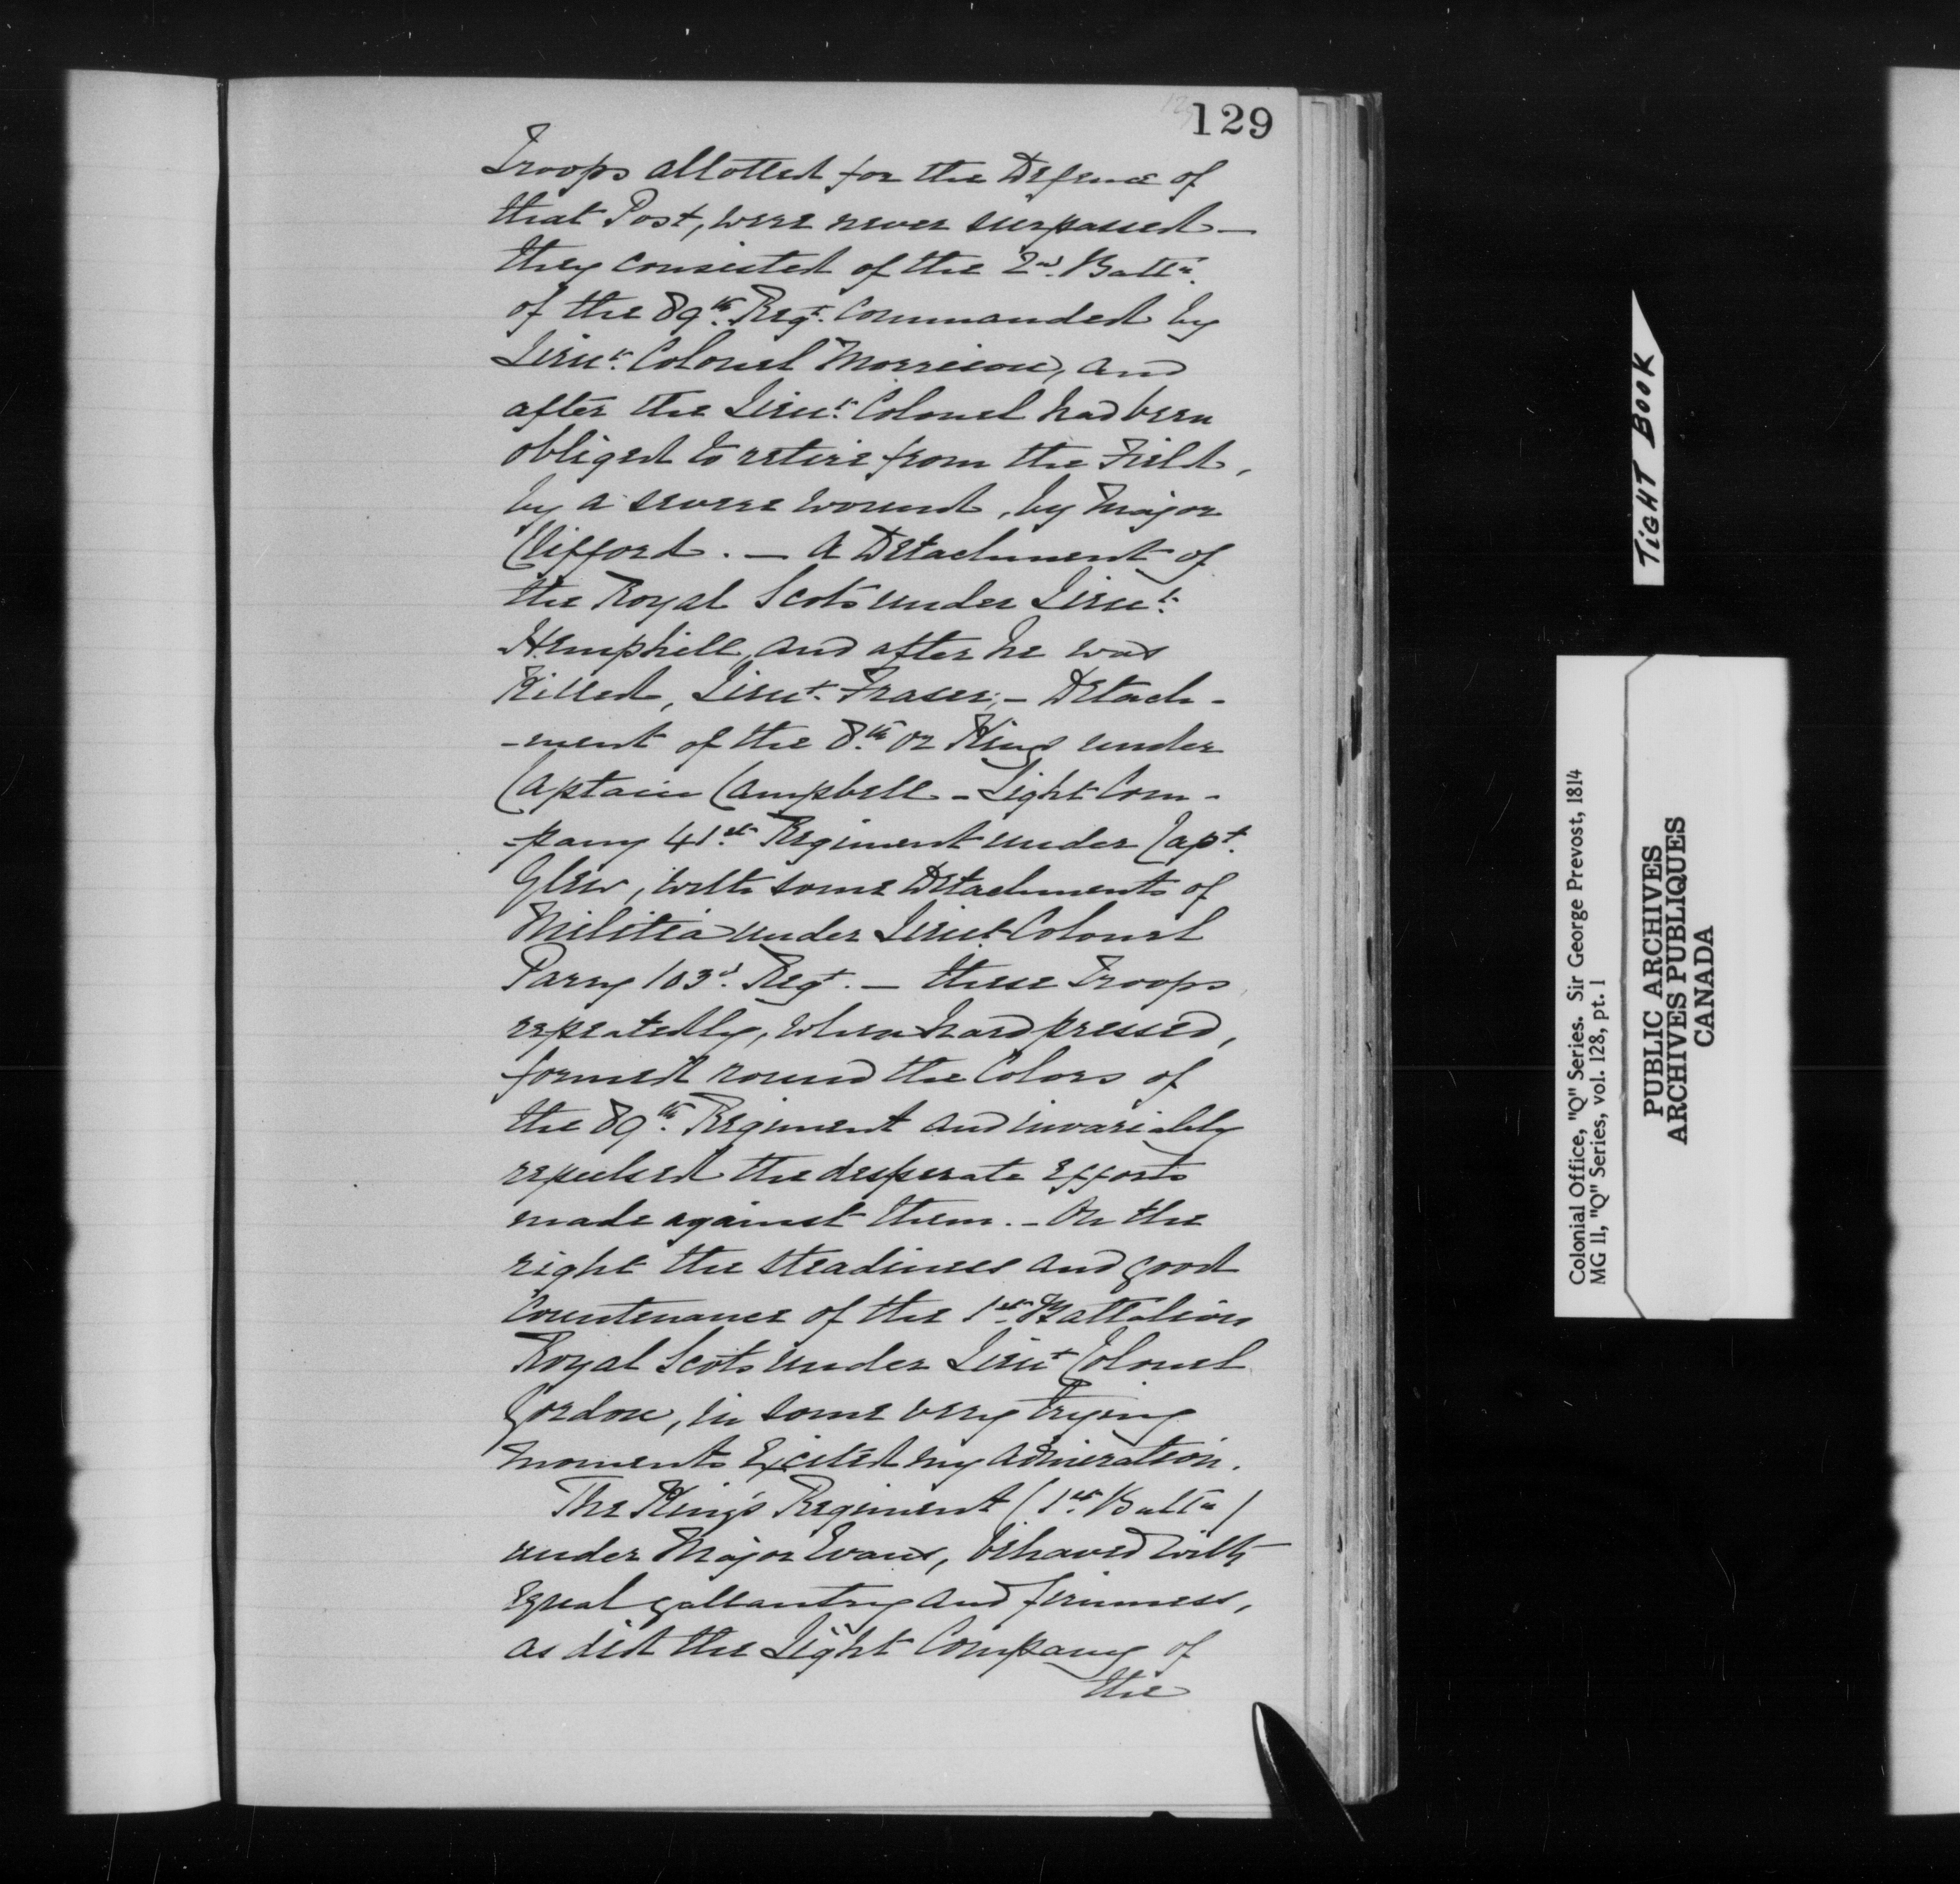 129
Troops allotted for the Defence of
that Post, were never surpassed —
they consisted of the 2d. Battn.
of the 89th. Regt. Commanded by
Lieut. Colonel Morrison, and
after the Lieut. Colonel had been
obliged to retire from the Field,
by a severe wound, by Major
Clifford. — A Detachment of
the Royal Scots under Lieut.
Hemphill, and after he was
Killed, Lieut. Fraser; — Detach-
-ment of the 8th. or Kings under
Captain Campbell — Light Com-
-pany 41st. Regiment under Capt.
Glew, with some Detachments of
Militia under Lieut. Colonel
Parry 103d. Regt. — these Troops
repeatedly, when hard pressed,
formed round the Colors of
the 89th. Regiment and invariably
repulsed the desperate efforts
made against them. — On the
right the steadiness and good
Countenance of the 1st. Battalion
Royal Scots under Lieut Colonel
Gordon, in some very trying
moments Excited my admiration.
The King's Regiment (1st. Battn)
under Major Evans, behaved with
Equal gallantry and firmness,
as did the Light Company of
the
TIGHT BOOK
Colonial Office, "Q" Series. Sir George Prevost, 1814
MG 11, "Q" Series, vol. 128, pt. 1
PUBLIC ARCHIVES
ARCHIVES PUBLIQUES
CANADA